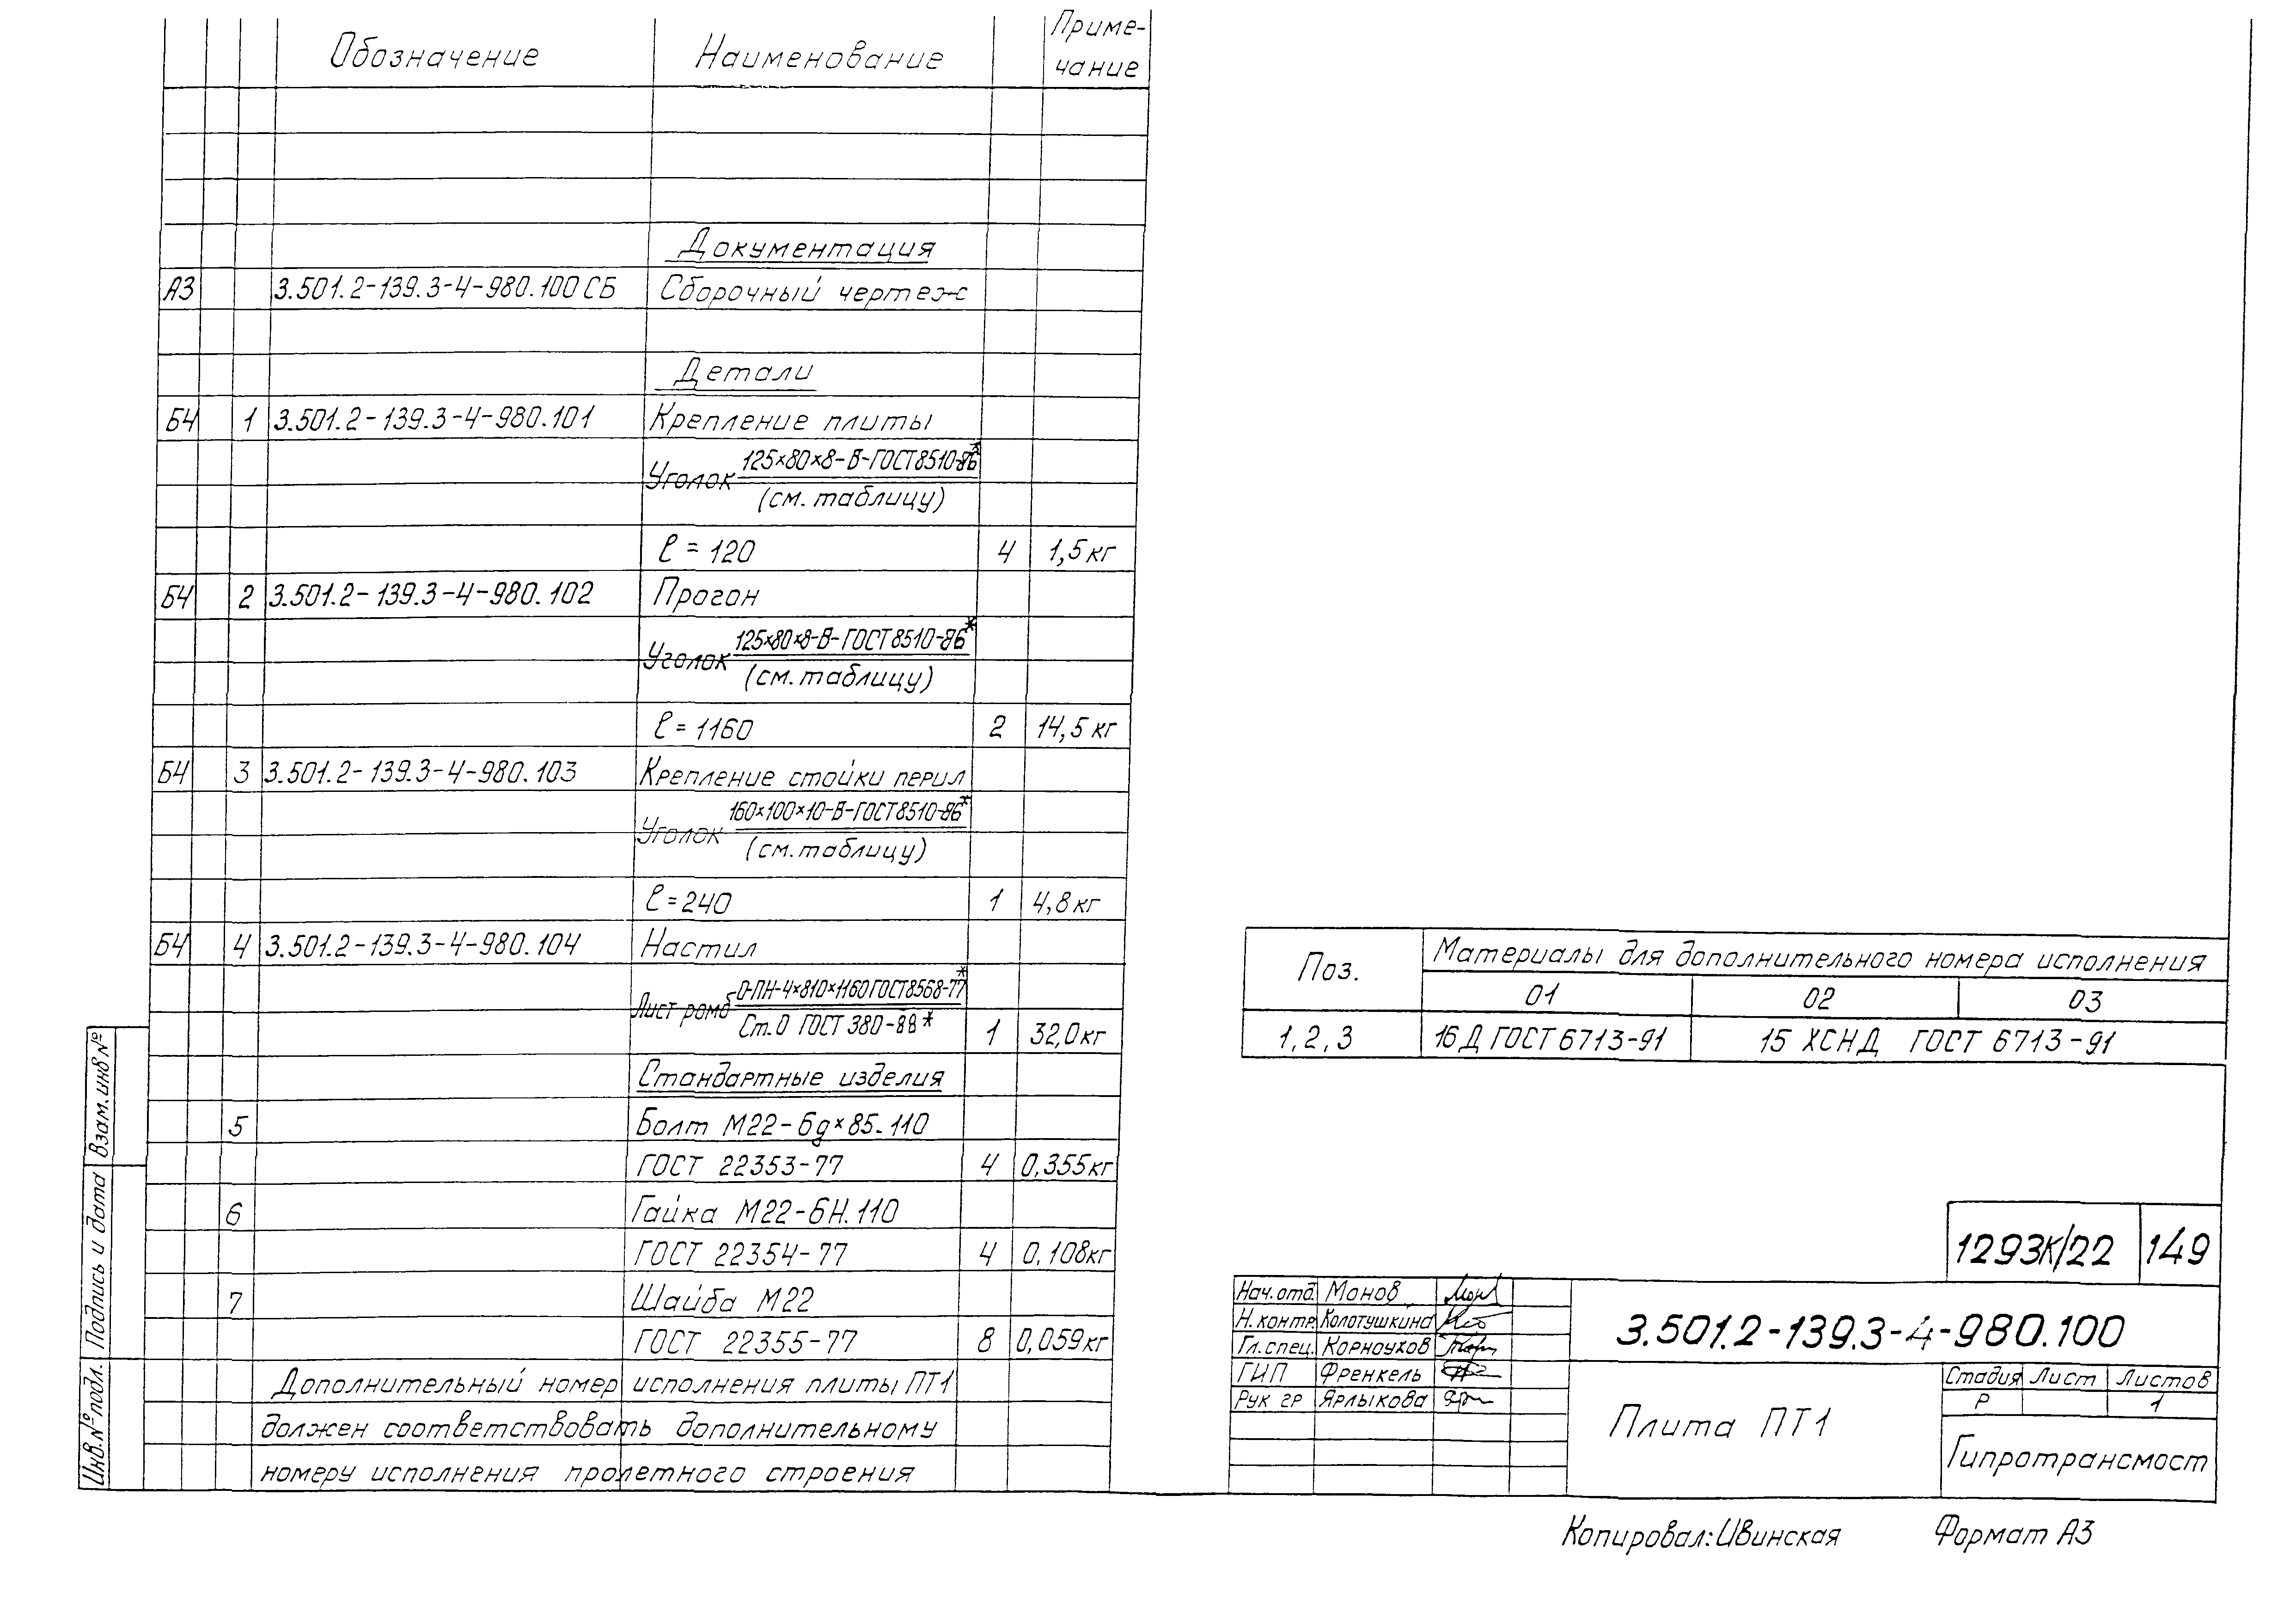 Обозначение Наименование Приме-
чание
Документация
А3 3.501.2-139.3-4-980.100СБ Сборочный чертеж
Детали
Б4 1 3.501.2-139.3-4-980.101 Крепление плиты
Уголок 125×80×8-В-ГОСТ8510-86*
(см. таблицу)
ℓ=120 4 1,5кг
Б4 2 3.501.2-139.3-4-980.102 Прогон
Уголок 125×80×8-В-ГОСТ8510-86*
(см. таблицу)
ℓ=1160 2 14,5 кг
Б4 3 3.501.2-139.3-4-980.103 Крепление стойки перил
Уголок 160×100×10-В-ГОСТ8510-86*
(см. таблицу)
ℓ=240 1 4,8кг
Б4 4 3.501.2-139.3-4-980.104 Настил
Лист ромб О-ПН-4×810×1160ГОСТ8568-77*
Ст.0 ГОСТ 380-88* 1 32,0кг
Стандартные изделия
5 Болт М22-6g×85.110
ГОСТ 22353-77 4 0,355кг
6 Гайка М22-6Н.110
ГОСТ 22354-77 4 0,108кг
7 Шайба М22
ГОСТ 22355-77 8 0,059кг
Дополнительный номер исполнения плиты ПТ1
должен соответствовать дополнительному
номеру исполнения пролетного строения
Взам.инв№
Подпись и дата
Инв.№подл.
Поз. Материалы для дополнительного номера исполнения
01 02 03
1,2,3 16Д ГОСТ6713-91 15 ХСНД ГОСТ 6713-91
1293К/22 149
Нач.отд. Монов
Н.контр. Колотушкина
Гл.спец. Корноухов
ГИП Френкель
Рук гр Ярлыкова
3.501.2-139.3-4-980.100
Плита ПТ1
Стадия Лист Листов
Р 1
Гипротрансмост
Копировал: Ивинская Формат А3